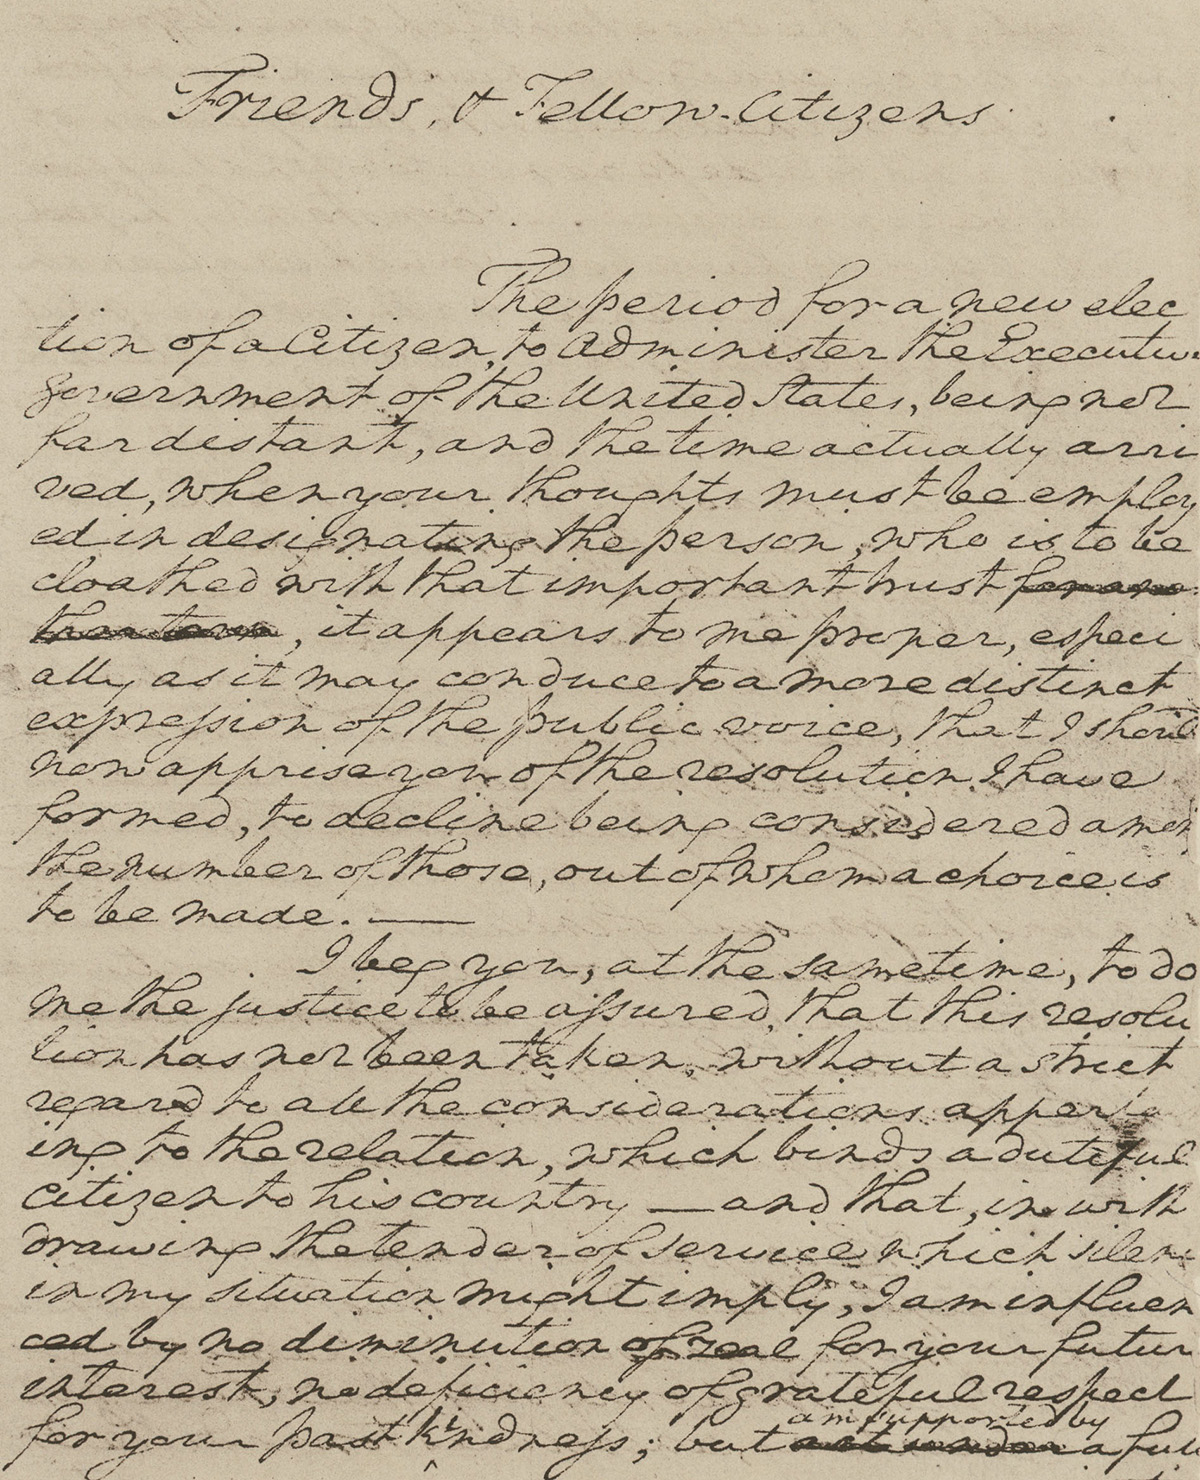 Friends, & Fellow-Citizens
The period for a new elec
tion of a Citizen, to Administer the Executive
government of the United States, being not
far distant, and the time actually arri
ved, when your thoughts must be employ
ed in designating the person, who is to be
cloathed with that important trust for ano
ther term, it appears to me proper, especi
ally as it may conduce to a more distinct
expression of the public voice, that I should
now apprise you of the resolution I have
formed, to decline being considered among
the number of those, out of whom a choice is
to be made. —
I beg you, at the same time, to do
me the justice to be assured, that this resolu
tion has not been taken, without a strict
regard to all the considerations apper
ing to the relation, which binds a dutiful
citizen to his country — and that, in with
drawing the tender of service which silen
in my situation might imply, I am influen
ced by no diminution of zeal for your futur
interest, no deficiency of grateful respect
for your past kindness; but am supported by a full